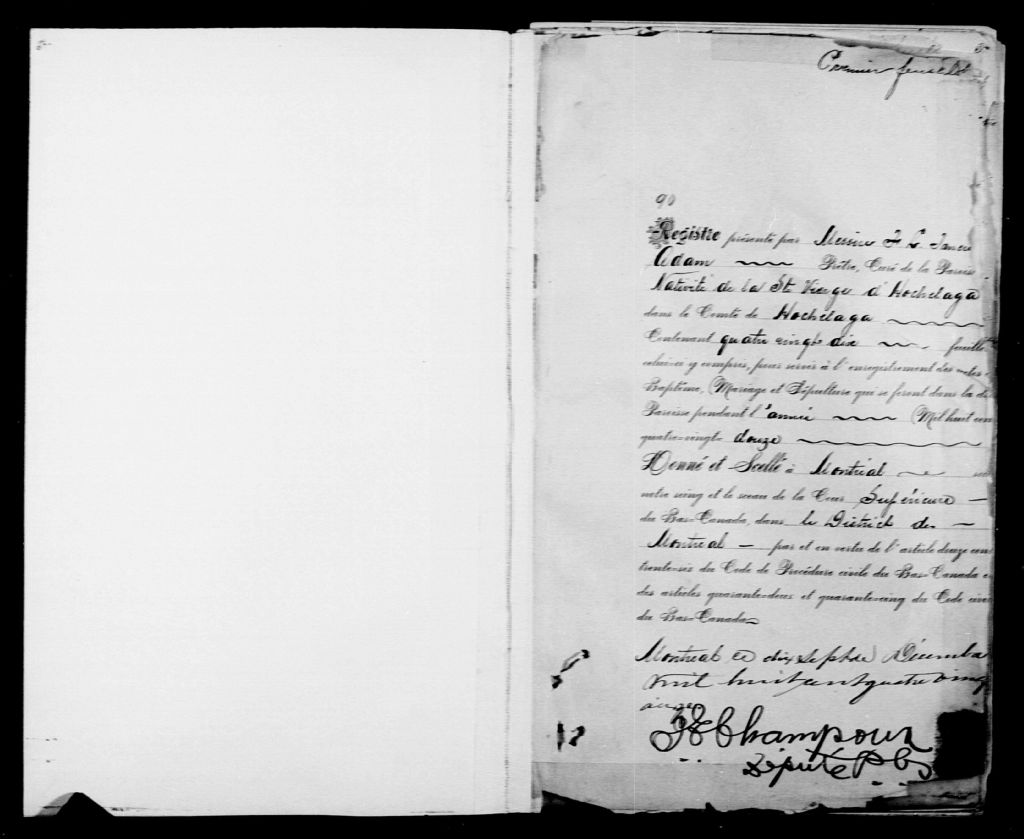 Premier feuillet
90
Registre présenté par Messire F. L. 
Adam Prêtre, Curé de la Paroisse
Nativité de la Ste Vierge d'Hochelaga
dans le Comté de Hochelaga
Contenant quatre vingt dix feuillets
celui-ci y compris, pour servir à l'enregistrement des actes
Baptême, Mariage et Sépulture qui se feront dans la di
Paroisse pendant l'année Mil huit cen
quatre-vingt- douze
Donné et Scellé à Montréal
notre seing et le sceau de la Cour Supérieure
du Bas-Canada, dans le District de
Montréal par et en vertu de l'article douze cen
trente-six du Code de Procédure civile du Bas-Canada e
des articles quarante-deux et quarante-cinq du Code civi
du Bas-Canada
Montreal ce dix sept de Décembre
mil huit cent quatre vingt
onze
Champoux
Député P C S